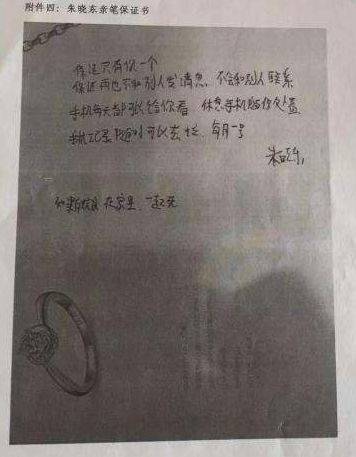 附件四：朱晓东亲笔保证书
保证只有你一个
保证再也不和别人发消息 不会和别人联系
手机每天都可以给你看 休息手机随你处置
手机记录随时可以去拉，每月一号
朱晓东
在家里，一起死